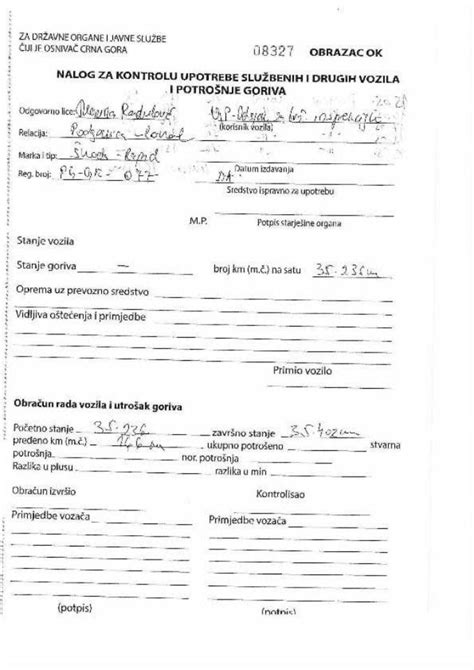 ZA DRŽAVNE ORGANE I JAVNE SLUŽBE
ČIJI JE OSNIVAČ CRNA GORA
08327 OBRAZAC OK
NALOG ZA KONTROLU UPOTREBE SLUŽBENIH I DRUGIH VOZILA
I POTROŠNJE GORIVA
Odgovorno lice:
(korisnik vozila)
Relacija: Podgorica
Marka i tip: Škoda Rapid
Datum izdavanja
Reg. broj: PG-GR-077 DA
Sredstvo ispravno za upotrebu
M.P. Potpis starješine organa
Stanje vozila
Stanje goriva — broj km (m.č.) na satu 35.236 km
Oprema uz prevozno sredstvo
Vidljiva oštećenja i primjedbe
Primio vozilo
Obračun rada vozila i utrošak goriva
Početno stanje 35.236 završno stanje 35.402 km
pređeno km (m.č.) 166 km, ukupno potrošeno stvarna
potrošnja nor. potrošnja
Razlika u plusu razlika u min
Obračun izvršio Kontrolisao
Primjedbe vozača Primjedbe vozača
(potpis) (potpis)